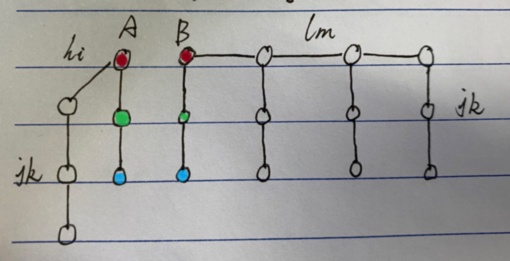 hi A B lm
jk jk